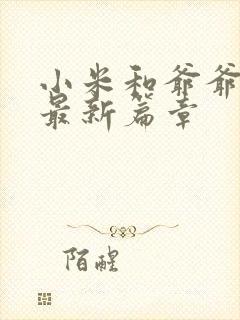 小米和爷爷
最新篇章
陌醒